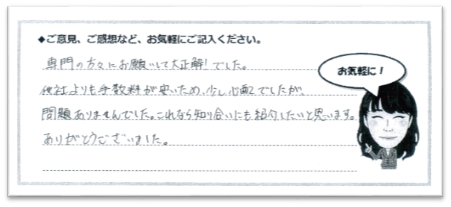 ◆ご意見、ご感想など、お気軽にご記入ください。
専門の方々にお願いして大正解!でした。
他社よりも手数料が安いため、少し心配でしたが、
問題ありませんでした。これなら知り合いにも紹介したいと思います。
ありがとうございました。
お気軽に!